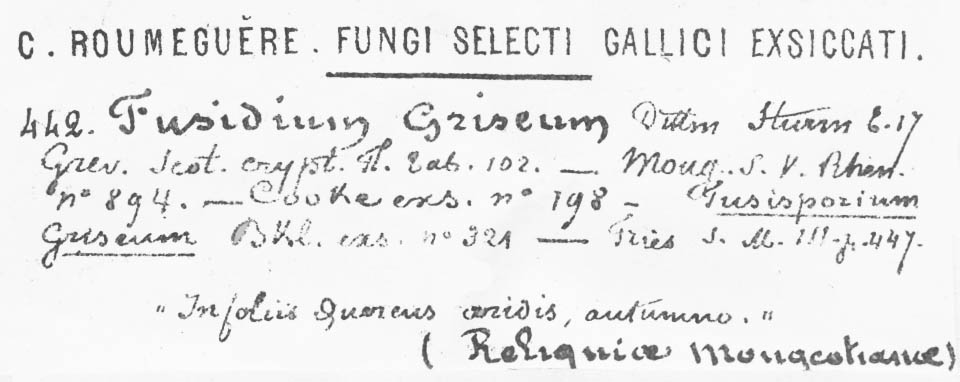 C. ROUMEGUÈRE. FUNGI SELECTI GALLICI EXSICCATI.
442. Fusidium Griseum Dittm Sturm t. 17
Grev. Scot. crypt. Fl. Tab. 102. — Moug. S. V. Rhen.
n° 894. — Cooke exs. n° 198 - Fusisporium
Griseum Bkl. exs. n° 321 — Fries S. M. III p. 447.
"In foliis Quercus aridis, autumno."
(Reliquiæ Mougeotianæ)